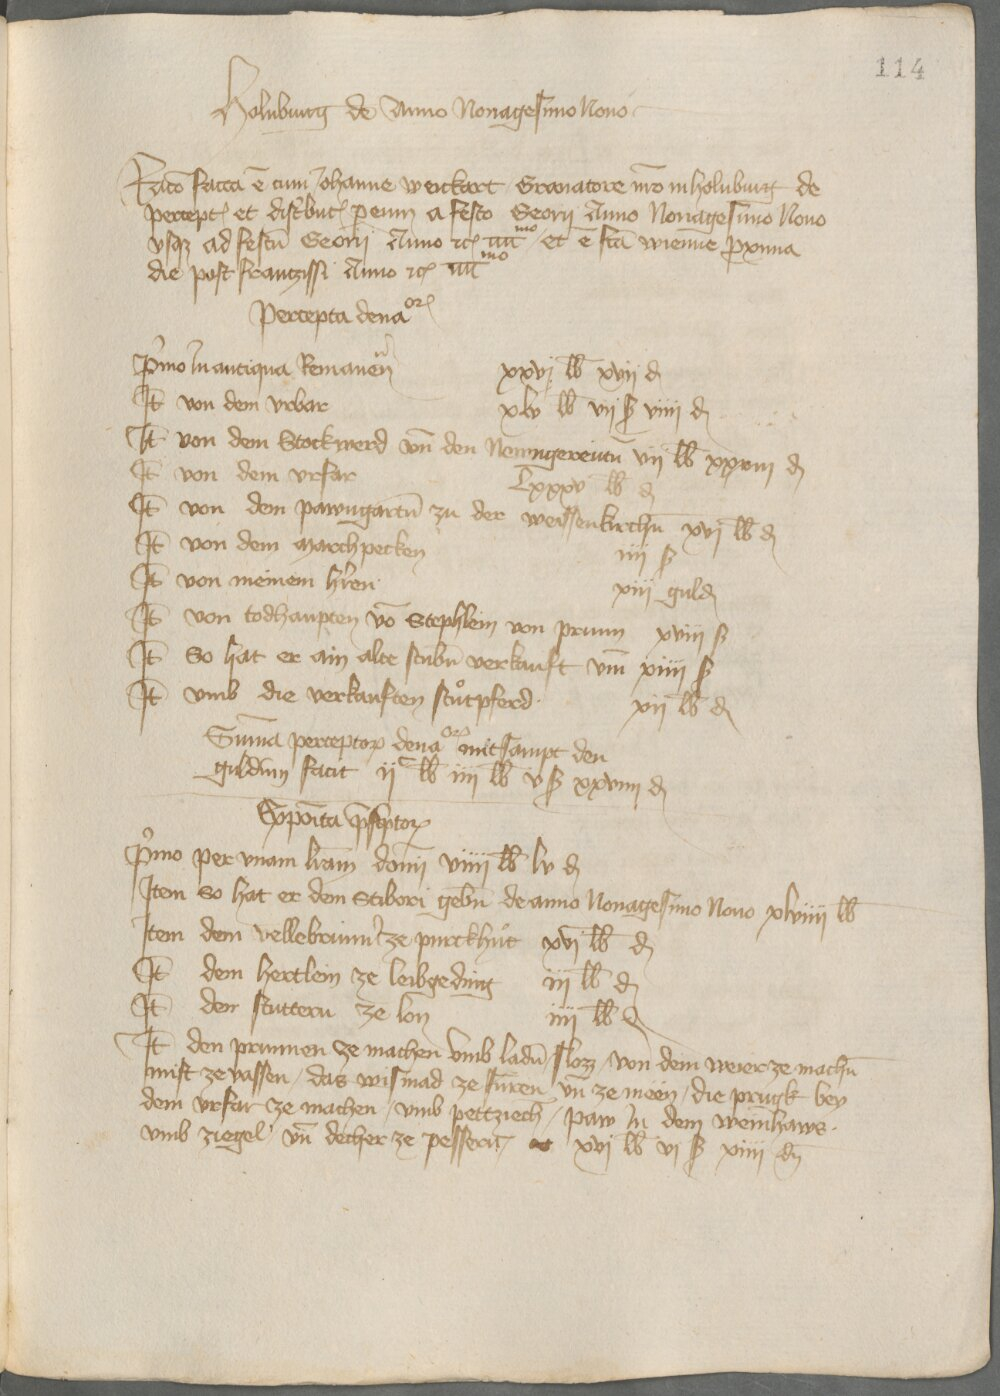 114
Holnburg de Anno Nonagesimo Nono
Racō facta ē cum Johanne Weickart Granatore nro in holnburg de
percept et distbuc penn a festo Georij Anno Nonagesimo Nono
vsqz ad festū Georij Anno rc iiii mo et ē fta wienne pxima
die post francissi Anno rc iiii mo
Percepta dena or
Pmo in antiqua Remanen xxvj lb xvij d
It von dem vrbar xlv lb vij ß viiij d
It von dem Stockwerd vn den Newngereutn vij lb xxviij d
It von dem vrfar Lxxxv lb d
It von dem pawngartn zu der weissenkirchn xvj lb d
It von dem Marchpecken iiij ß
It von meinem hren xiij guld
It von todhaupten vō Stephlein von prunn xviij ß
It So hat er ain alte stubn verkauft vm xiiij ß
It vmb die verkauften stutpferd xij lb d
Suma perceptor dena or mitsampt den
guldinn facit ij c lb iiij lb v ß xxviiij d
Exposita pscptor
Pmo per vnam lram domi viiij lb lv d
Item So hat er dem Stibori gebn de anno Nonagesimo Nono xlviiij lb
Item dem vellebrunn ze purckhut xvj lb d
It dem hertlein ze leibgeding iij lb d
It den stuttern ze lon iiij lb d
It den prunnen ze machen vmb ladn slozz von dem weier ze machn
mist ze vassen das wismad ze füren vn ze meen die prugk bey
dem vrfar ze machen vmb pettziech paw in dem weinhaws
vmb ziegel vn decher ze pessern xvj lb vj ß xiiij dn